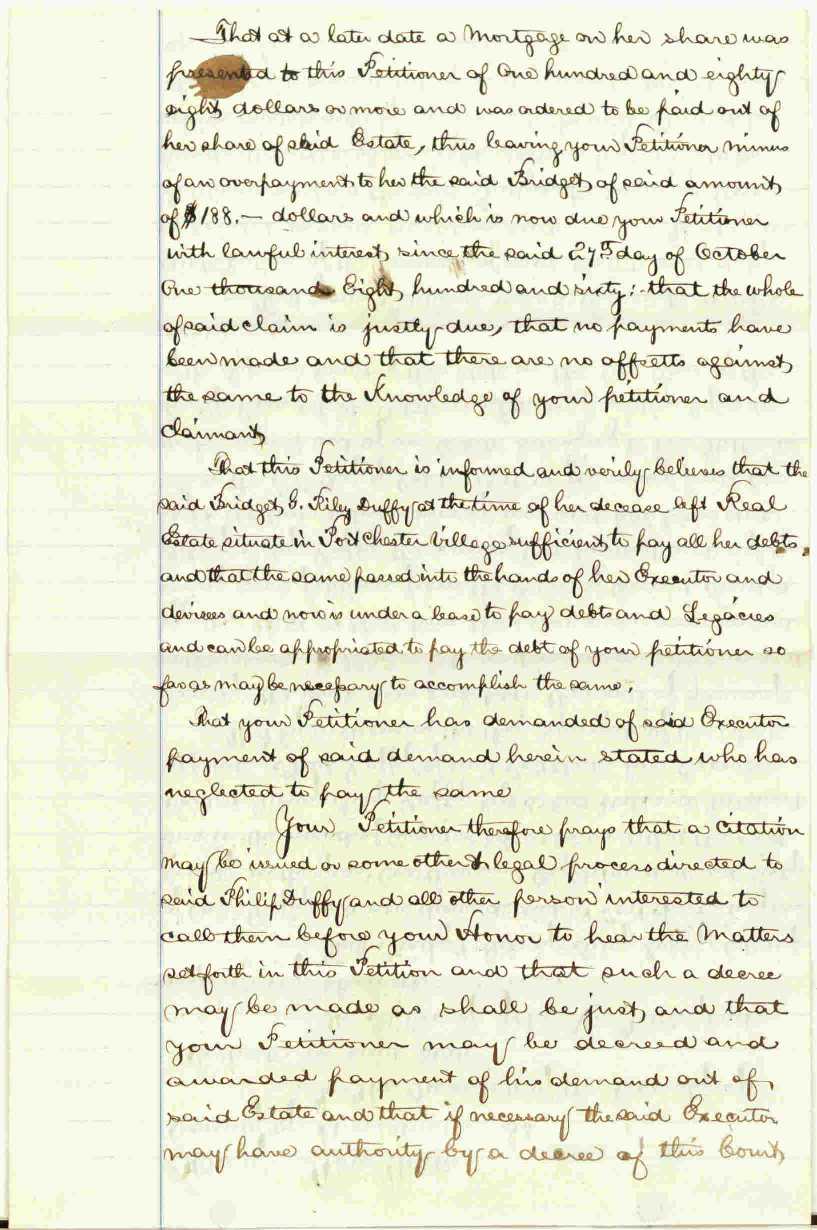 That at a later date a Mortgage on her share was
presented to this Petitioner of One hundred and eighty
eight dollars or more and was ordered to be paid out of
her share of said Estate, thus leaving your Petitioner minus
of an overpayment to her the said Bridget of said amount
of $188.— dollars and which is now due your Petitioner
with lawful interest since the said 27th day of October
One thousand Eight hundred and sixty: that the whole
of said claim is justly due, that no payments have
been made and that there are no offsetts against
the same to the Knowledge of your petitioner and
Claimant
That this Petitioner is informed and verily believes that the
said Bridget G. Riley Duffy at the time of her decease left Real
Estate situate in Port Chester Village sufficient to pay all her debts
and that the same passed into the hands of her Executor and
devisees and now is under a lease to pay debts and Legacies
and can be appropriated to pay the debt of your petitioner so
far as may be necessary to accomplish the same;
That your Petitioner has demanded of said Executor
payment of said demand herein stated who has
neglected to pay the same
Your Petitioner therefore prays that a Citation
may be issued or some other legal process directed to
said Philip Duffy and all other person interested to
call them before your Honor to hear the Matters
set forth in this Petition and that such a decree
may be made as shall be just and that
your Petitioner may be decreed and
awarded payment of his demand out of
said Estate and that if necessary the said Executor
may have authority by a decree of this Court